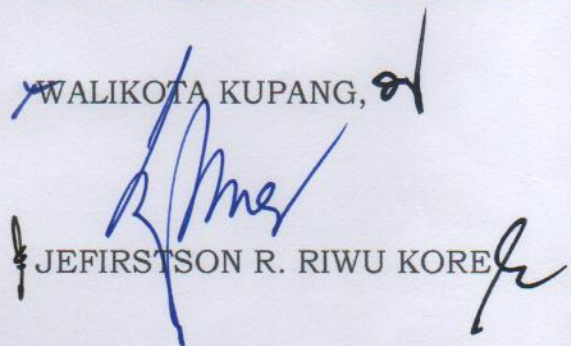 WALIKOTA KUPANG,
JEFIRSTSON R. RIWU KORE